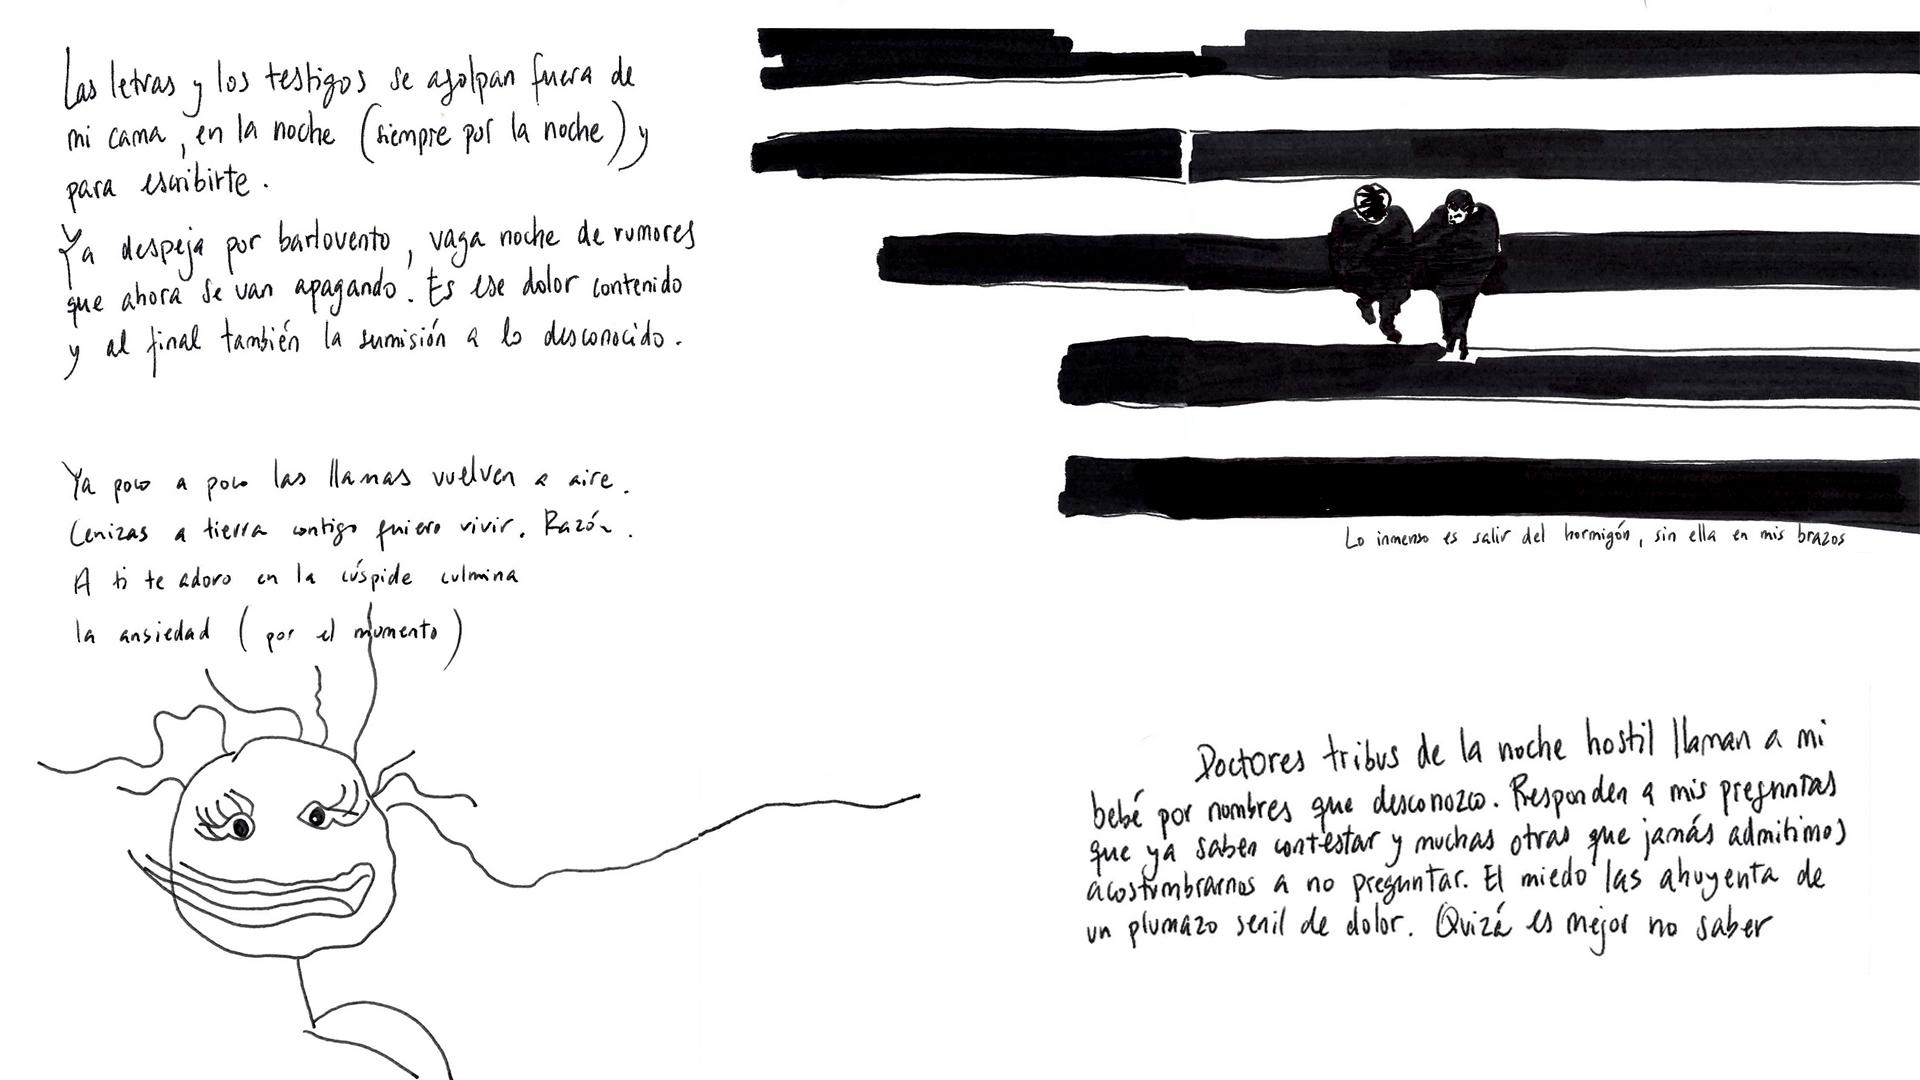 Las letras y los testigos se agolpan fuera de
mi cama, en la noche (siempre por la noche) y
para escribirte.
Ya despeja por barlovento, vaga noche de rumores
que ahora se van apagando. Es ese dolor contenido
y al final también la sumisión a lo desconocido.
Ya poco a poco las llamas vuelven a aire.
Cenizas a tierra contigo quiero vivir. Razón.
A ti te adoro en la cúspide culmina
la ansiedad (por el momento)
Lo inmenso es salir del hormigón, sin ella en mis brazos
Doctores tribus de la noche hostil llaman a mi
bebé por nombres que desconozco. Responden a mis preguntas
que ya saben contestar y muchas otras que jamás admitimos
acostumbrarnos a no preguntar. El miedo las ahuyenta de
un plumazo senil de dolor. Quizá es mejor no saber